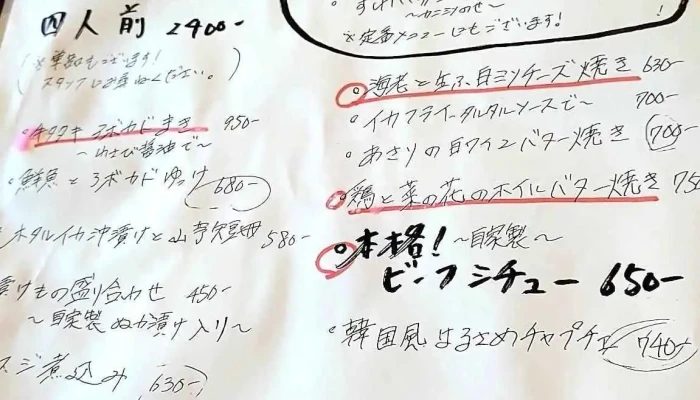 四人前 2400-
(※単品もございます!
スタッフに
タタキアボカドまき 950-
〜わさび醤油で〜
・鮮魚とアボカドゆっけ 680-
ホタルイカ沖漬けと山芋短冊 580-
漬けもの盛り合わせ 450-
〜自家製ぬか漬け入り〜
スジ煮込み 630-
〜カニミソのせ〜
※定番メニューにもございます!
・海老と生ふ白ミソチーズ焼き 630-
・イカフライ-タルタルソースで〜 700-
・あさりの白ワインバター焼き 700-
・鶏と菜の花のホイルバター焼き 75
・本格!〜自家製〜
ビーフシチュー 650-
・韓国風はるさめチャプチェ 740-